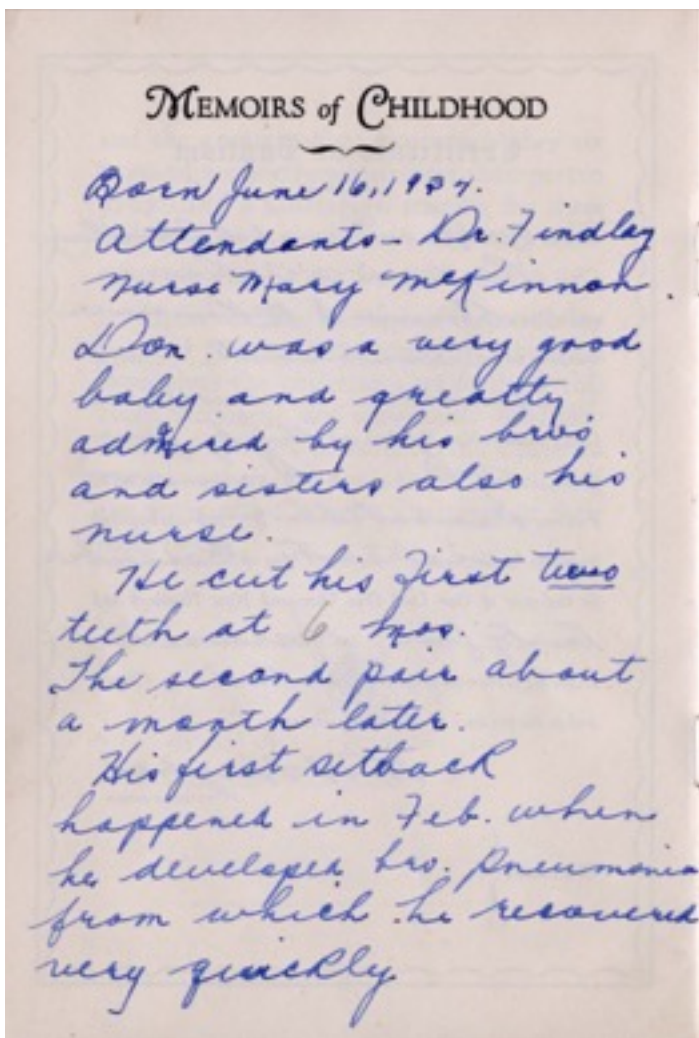 MEMOIRS of CHILDHOOD
Born June 16, 1937.
Attendants - Dr. Findlay
Nurse Mary McKinnon
Don was a very good
baby and greatly
admired by his bros
and sisters also his
nurse.
He cut his first two
teeth at 6 mos.
The second pair about
a month later.
His first setback
happened in Feb. when
he developed bro. pneumonia
from which he recovered
very quickly